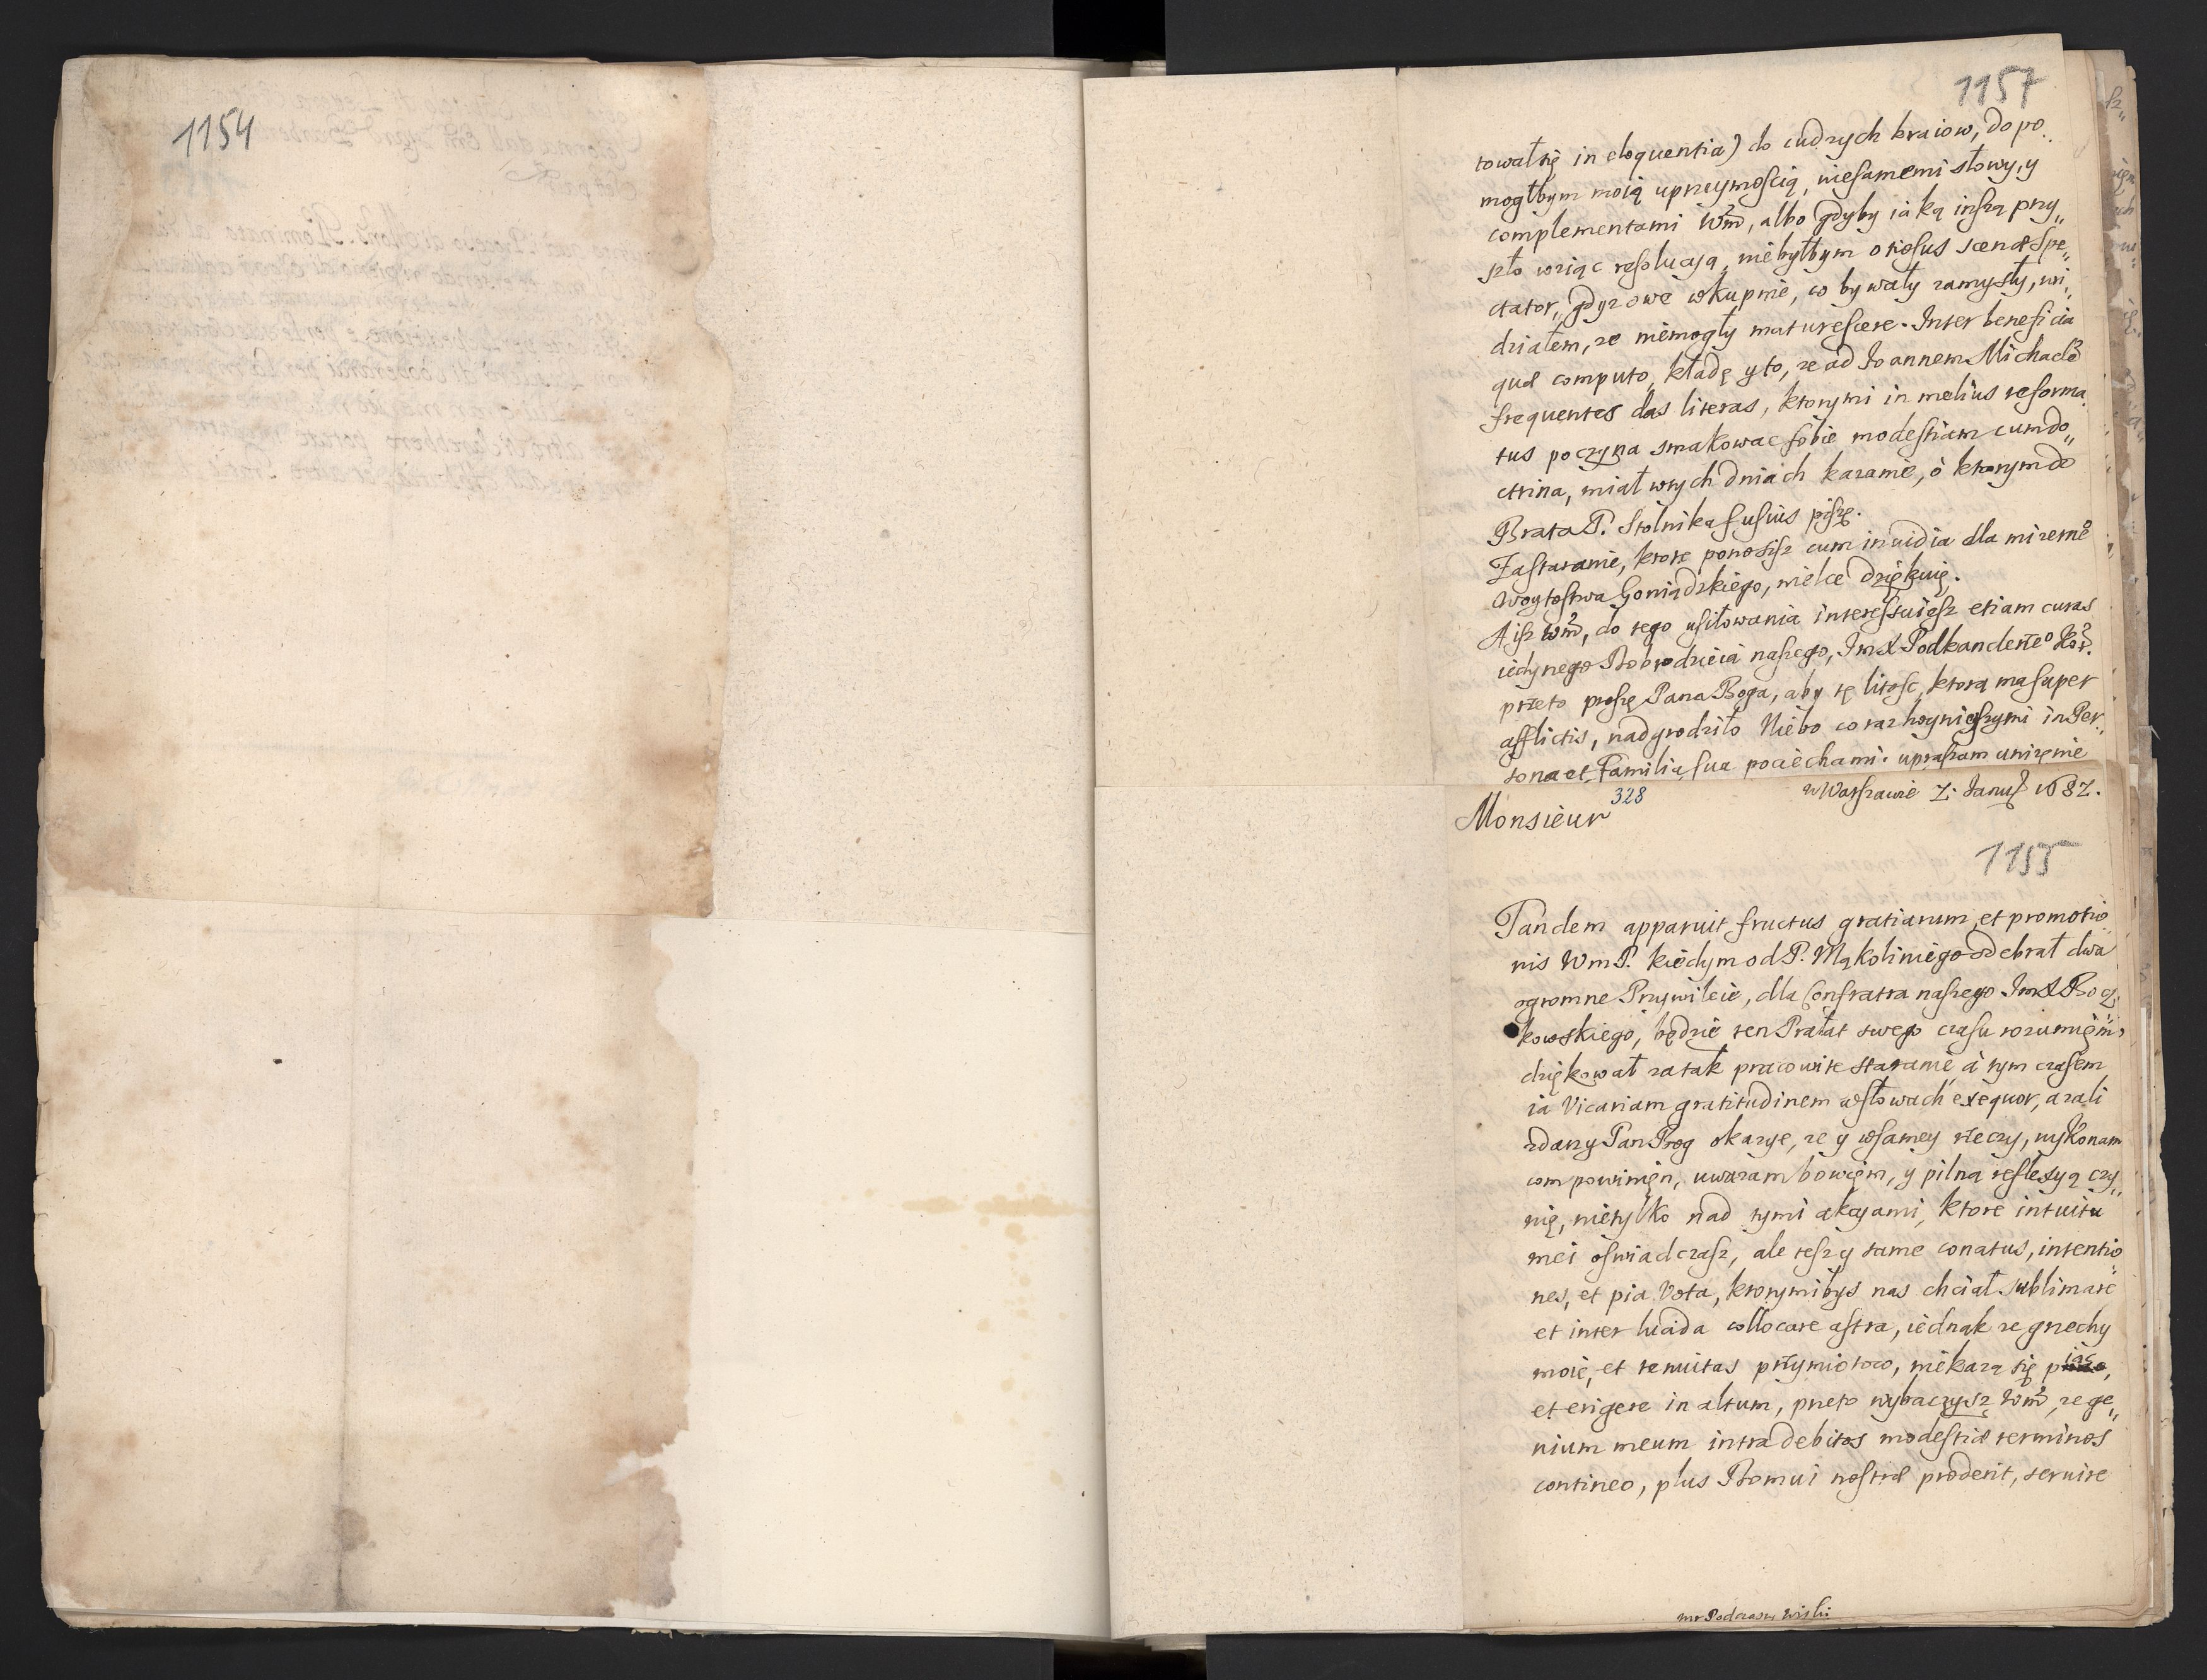 1154
1157
towałsię in eloquentia) do cudzych kraiow, dopo
mogłbym moią uprzeymoscią, niesamemi słowy, y
complementami Wm, albo gdyby iaką inszą przy„
szło wziąc resolucyą, niebyłbym otiosus scenæ Spe„
ctator, gdyz owe wkupnie, co bywały zamysły, wi„
działem, ze niemogły maturescere. Inter beneficia
quæ computo, kładę y to, ze ad Joannem Michaelẽ
frequentes das literas, ktorymi in melius reforma
tus poczyna smakowac sobie modestiam cum do„
ctrina, miał wtych dniach kazanie, o ktorym do
Brata P. Stolnika fusius piszę.
Zastaranie, ktore ponosisz cum inuidia dla mizerne͠
Woytostwa Goniądzkiego, wielce dziękuię.
Aisz Wm, do tego usiłowania interessuiesz etiam curas
iedynego Dobrodzieia naszego, Jm X Podkanclerze͠o Kor.
przeto proszę Pana Boga, aby tę litosc, ktorą ma super
afflictis, nadgrodziło Niebo coraz hoynieyszymi in Per„
sona et Familia sua pociechami. upraszam unizenie
328
w Warszawie 7. Janu͠ 1682.
Monsieur
1155
Tandem apparuit fructus gratiarum, et promotio
nis Wm P. kiedym od P. Mąkoliniego odebrał dwa
ogromne Przywileie, dla Confratra naszego Jm X Bocz
kowskiego, będzie ten Prałat swego czasu rozumiem,
dziękował zatak pracowite staranie, à tym czasem
ia Vicariam gratitudinem wsłowach exequor, azali
zdarzy Pan Bog okazye, ze y wsamey rzeczy, wykonam
com powinien, uwazam bowiem, y pilną reflexyą czy„
nię, nietylko nad tymi akcyami, ktore intuitu
mei oswiadczasz, ale tesz y same conatus, intentio
nes, et pia Vota, ktorymibys nas chciał sublimare
et inter lucida collocare astra, iednak ze grzechy
moie, et tenuitas przymiotow, niekazą się piąc,
et erigere in altum, przeto wybaczysz Wm, ze ge„
nium meum intra debitos modestiæ terminos
contineo, plus Domui nostræ proderit, seruire
mr Podczaszy Wiski